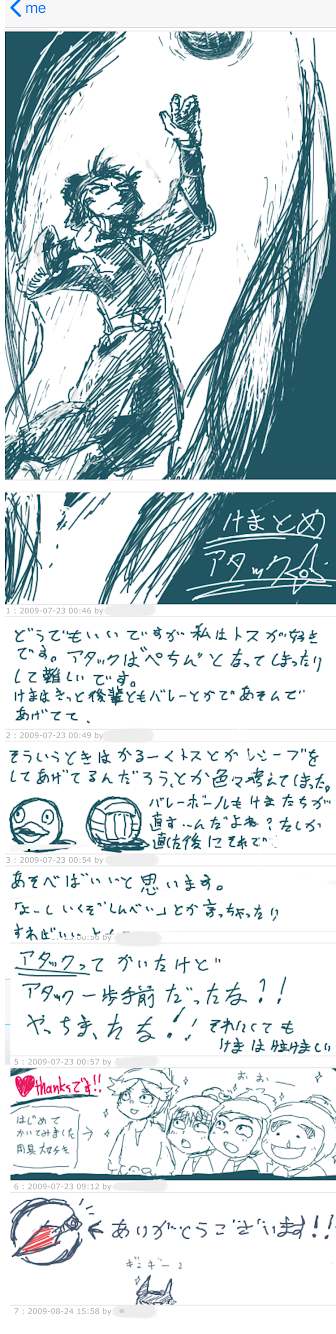 me
けまとめ
アタック
1 : 2009-07-23 00:46 by
どうでもいいですが私はトスが好き
です。アタックは"ぺちん"となってしまったり
して難しいです。
けまはきっと後輩ともバレーとかであそんで
あげてて、
2 : 2009-07-23 00:49 by
そういうときはかるーくトスとかレシーブを
してあげてるんだろう、とか色々考えてしまった。
バレーボールもけまたちが
直す…んだよね？たしか
直した後にそれで
3 : 2009-07-23 00:54 by
あそべばいいと思います。
「よーしいくぞしんべい」とか言っちゃったり
すればいい
00:56 by
アタックって かいたけど
アタック一歩手前だったな？！
やっちまったな！！それにしても
けまは
5 : 2009-07-23 00:57 by
thanksです!!
はじめて
かいてみました
用具大好き
おぉ
6 : 2009-07-23 09:12 by
ありがとうございます!!
ギンギー
7 : 2009-08-24 15:58 by